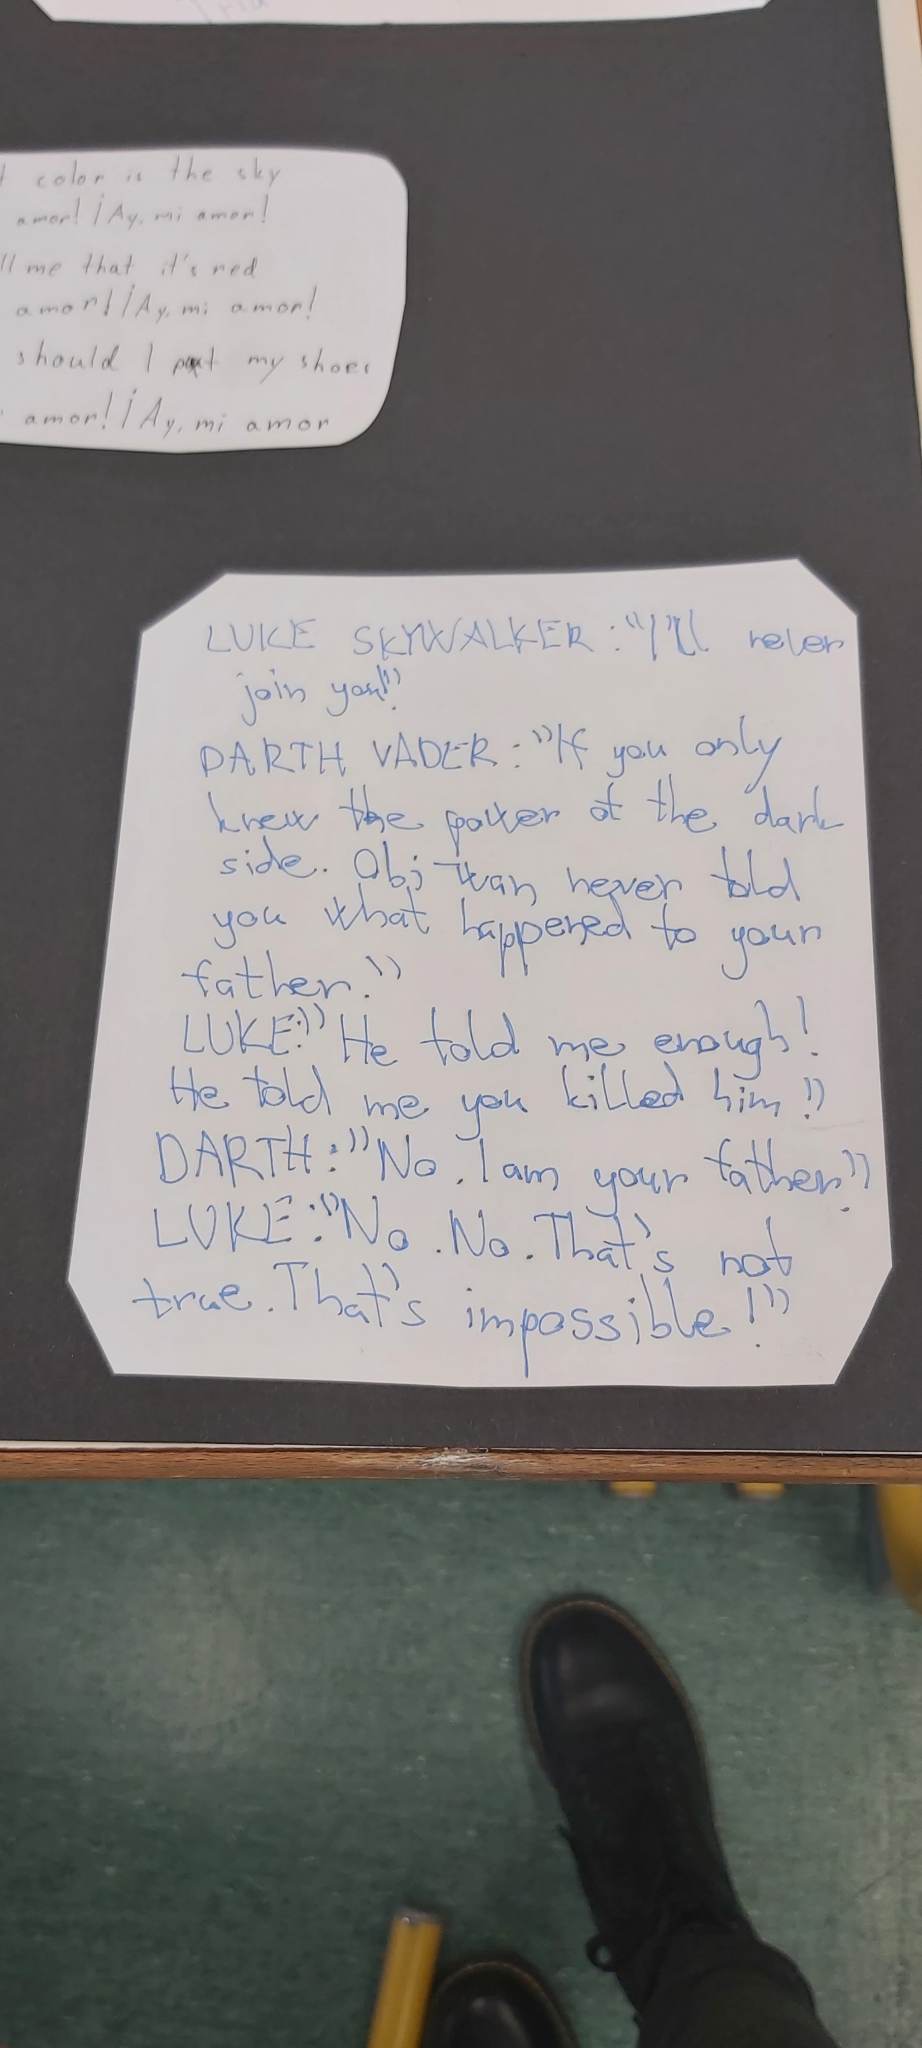 color is the sky
amor! ¡Ay, mi amor!
ll me that it's red
amor! ¡Ay, mi amor!
should I put my shoes
amor! ¡Ay, mi amor
LUKE SKYWALKER: "I'll never
join you!"
DARTH VADER: "If you only
knew the power of the dark
side. Obi-wan never told
you what happened to your
father."
LUKE: "He told me enough!
He told me you killed him!"
DARTH: "No. I am your father!"
LUKE: "No. No. That's not
true. That's impossible!"